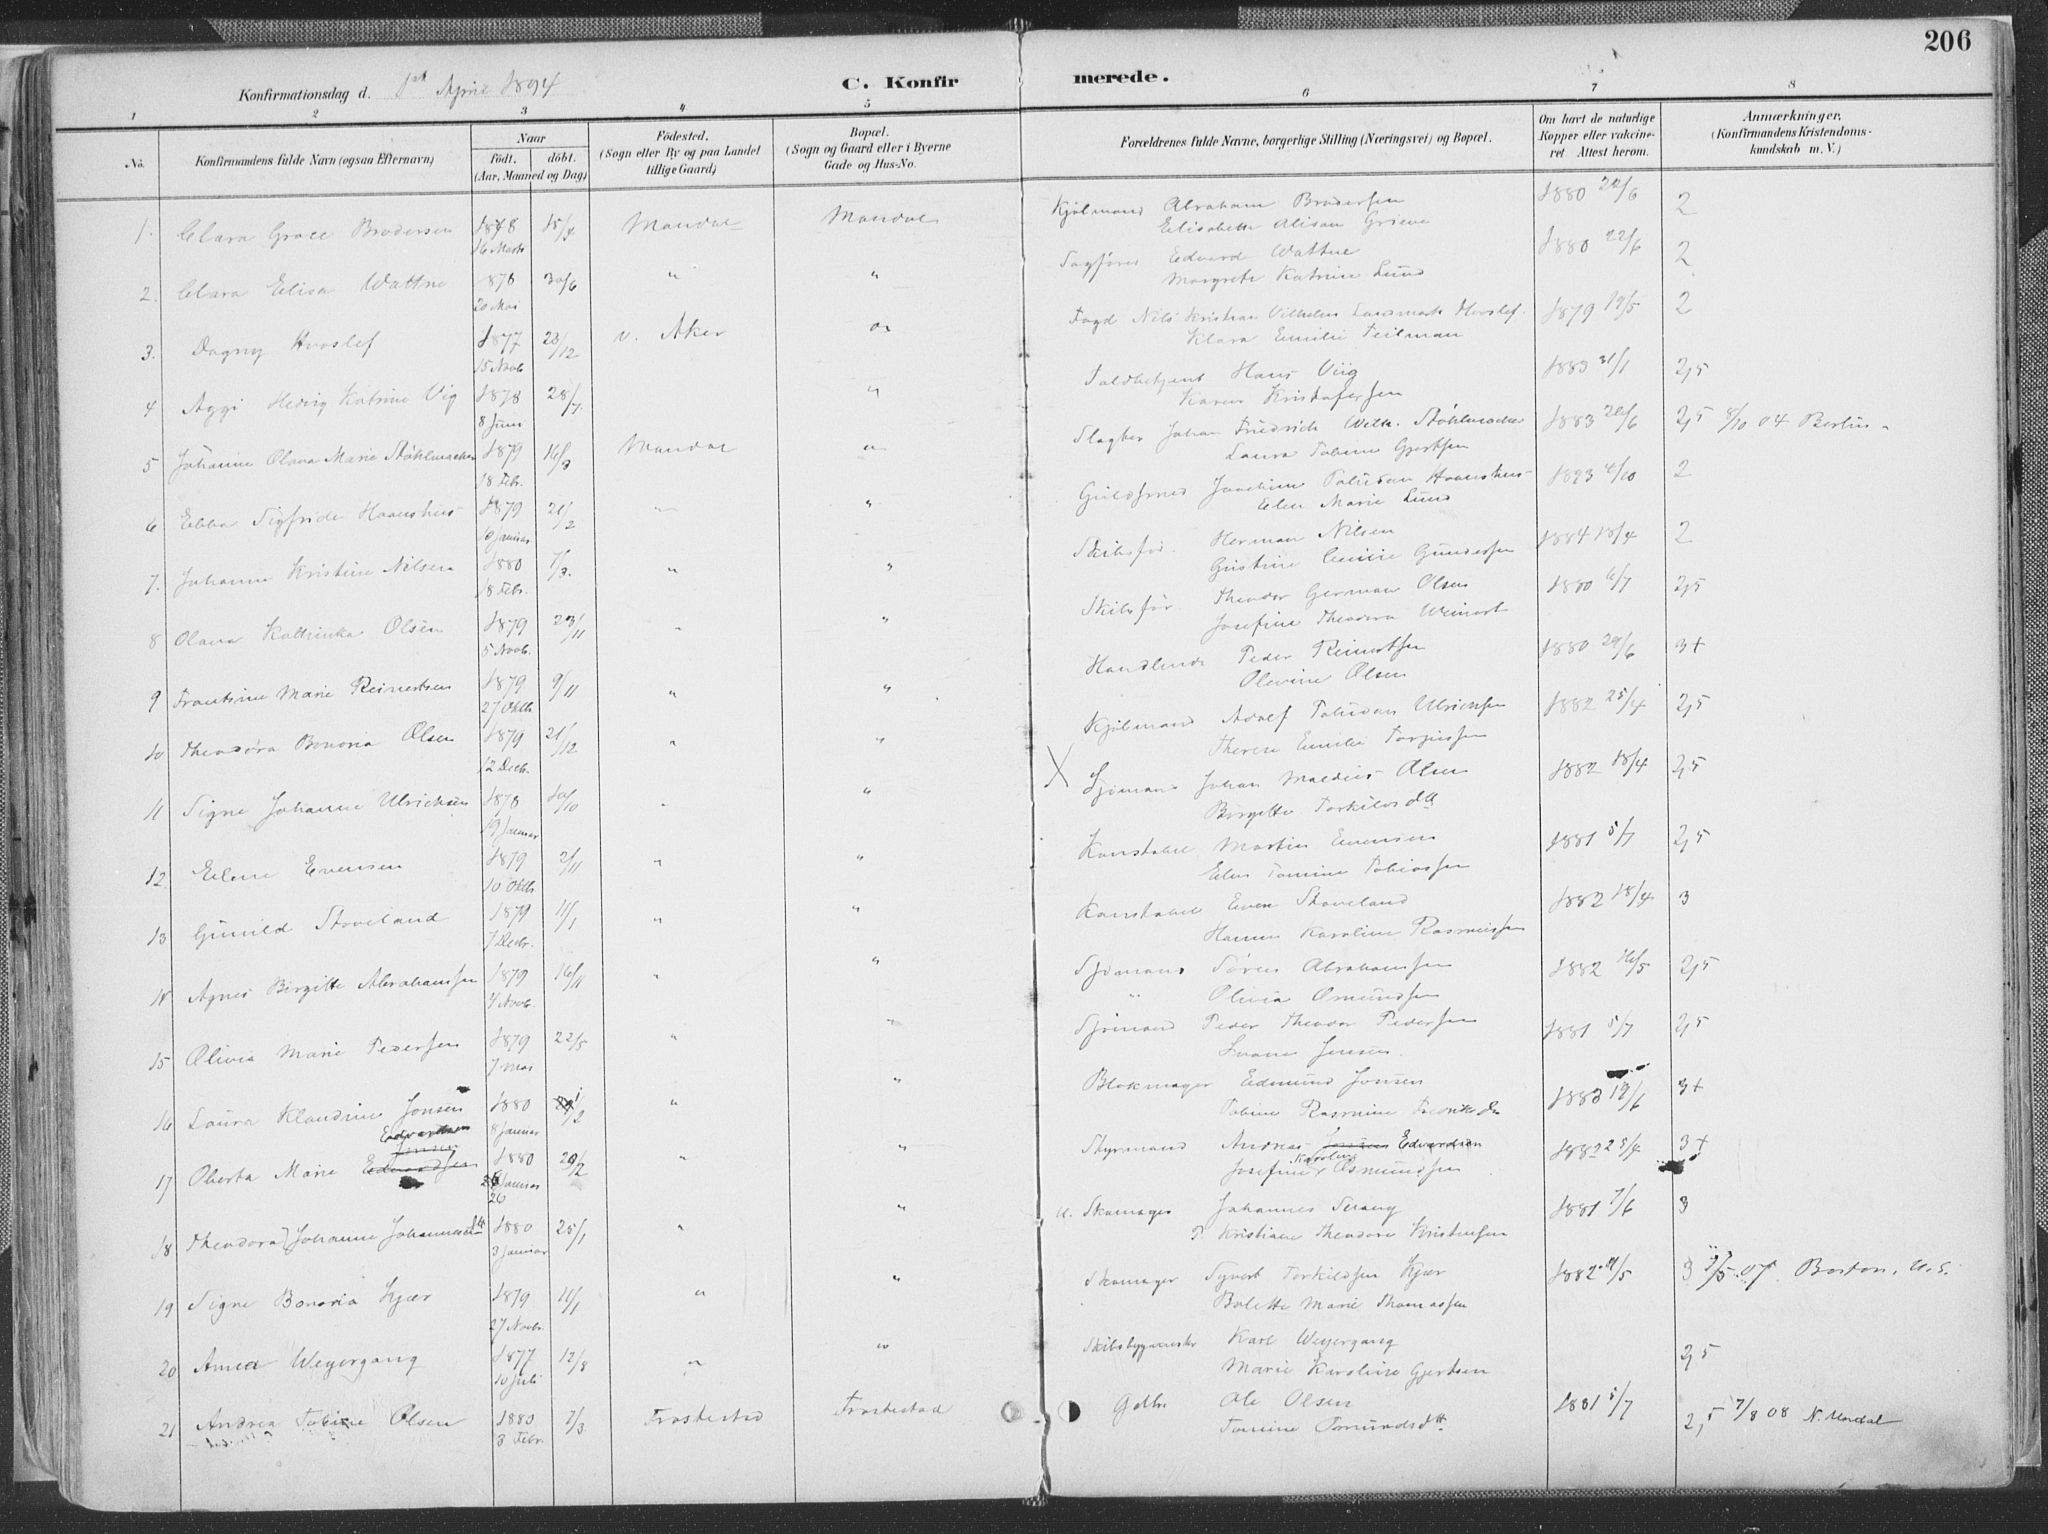 206
Konfirmationsdag d. 1st April 1894
C. Konfirmerede.
1 2 3 4 5 6 7 8
No.
Konfirmandens fulde Navn (ogsaa Efternavn)
Naar
født. døbt.
(Aar, Maaned og Dag)
Fødested.
(Sogn eller By og paa Landet
tillige Gaard)
Bopæl.
(Sogn og Gaard eller i Byerne
Gade og Hus-No.
Forældrenes fulde Navne, borgerlige Stilling (Næringsvei) og Bopæl.
Om havt de naturlige
Kopper eller vakcine-
ret Attest herom.
Anmærkninger,
(Konfirmandens Kristendoms-
kundskab m. V.)
1. Clara Grace Brodersen 1878 16 Marts 15/4 Mandal Mandal Kjølmand Abraham Brodersen 1880 22/6 2
Elisabeth Alison Grieve
2. Clara Elisa Wattne 1878 20 Mai 30/6 " " Sagfører Edvard Wattne 1880 22/6 2
Margrete Katrine Lund
3. Dagny Hvoslef 1877 15 Novb. 23/12 v. Aker " Fogd Nils Kristian Vilhelm Hvoslef. 1879 19/5 2
Klara Emilie Feilman
4 Aggi Hedvig Katrine Vig 1878 8 Juni 28/7. " Toldbetjent Hans Viig 1883 31/1 2,5
Karen Kristofersen
5 Johanne Olava Marie Støhlmacher 1879 18 Febr. 16/3 Mandal " Slagter Johan Friedrich Wilh. Støhlmacher 1883 20/6 2,5 8/10 04 Berlin
Laura Tobine Gjertsen
6 Ebba Sigfride Haanshus 1879 6 Januar 21/2 " " Guldsmed Joachim Paludan Haanshus 1893 4/10 2
Elen Marie Lund
7. Johanne Kristine Nilsen 1880 18 Febr. 7/3. " " Skibsfør. Herman Nilsen 1884 18/4 2
Gustine Cecilie Gundersen
8 Olava Kathinka Olsen 1879 5 Novb. 23/11 " " Skibsfør Theodor German Olsen 1880 6/7 2,5
Josefine Theodora Weinert
9 Frantsine Marie Reinertsen 1879 27 Oktb. 9/11 " " Handlende Peder Reinertsen 1880 29/6 3+
Olevine Olsen
10 Theodora Bonoria Olsen 1879 12 Decb. 21/12 " " Kjølmand Adolf Paludan Ulrichsen 1882 25/4 2,5
Therese Emilie Torjussen
11 Signe Johanne Ulrichsen 1878 19 Januar 10/10 " " X Sjømand Johan Mathias Olsen 1882 18/4 2,5
Birgitte Torkildsdtt
12. Elene Evensen 1879 10 Oktb. 2/11 " " Konstabel Martin Evensen 1881 5/7 2,5
Elen Tomine Tobiassen
13 Gunild Stoveland 1879 7 Decb. 11/1 " " Konstabel Even Stoveland 1882 18/4 3
Hanne Karoline Rasmussen
14 Agnes Birgitte Abrahamsen 1879 4 Novb. 16/11 " " Sjømand Søren Abrahamsen 1882 16/5 2,5
" Olivia Osmundsen
15 Olivia Marie Pedersen 1879 7 Mai 22/5 " " Sjømand Peder Theodor Pedersen 1881 5/7 2,5
Jensen.
16 Laura Klandine Jonsen 1880 8 Januar 1/2 " " Blokmager Edmund Jonsen 1883 19/6 3+
Tobine Rasmine
Edvardsen
17 Oberta Marie Edvardsen 1880 26 Januar 29/2 " " Styrmand Andreas Jonsen Edvardsen 1882 25/4 3+
Josefine Karoline Osmundsen
18 Theodora Johanne Johannesdtt 1880 3 Januar 25/1 " " u. Skomager Johannes Terang 1881 7/6 3
P. Kristiane Theodora Kristensen
19 Signe Bonoria Kjær 1879 27 Novb. 11/1 " " Skomager Syvert Torkildsen Kjær 1882 9/5 3 7/5 07. Boston. U.S.
Bolette Marie Thomassen
20 Anna Weyergang 1877 10 Juli 12/8 " " Skibsbygmester Karl Weyergang 2,5
Marie Karoline Gjertsen
21 Andrea Tobine Olsen 1880 3 Febr. 7/3 Frostestad Frostestad Gdbr. Ole Olsen 1881 5/7 2,5 7/8 08 N. Undal
Tomine Omundsdtt